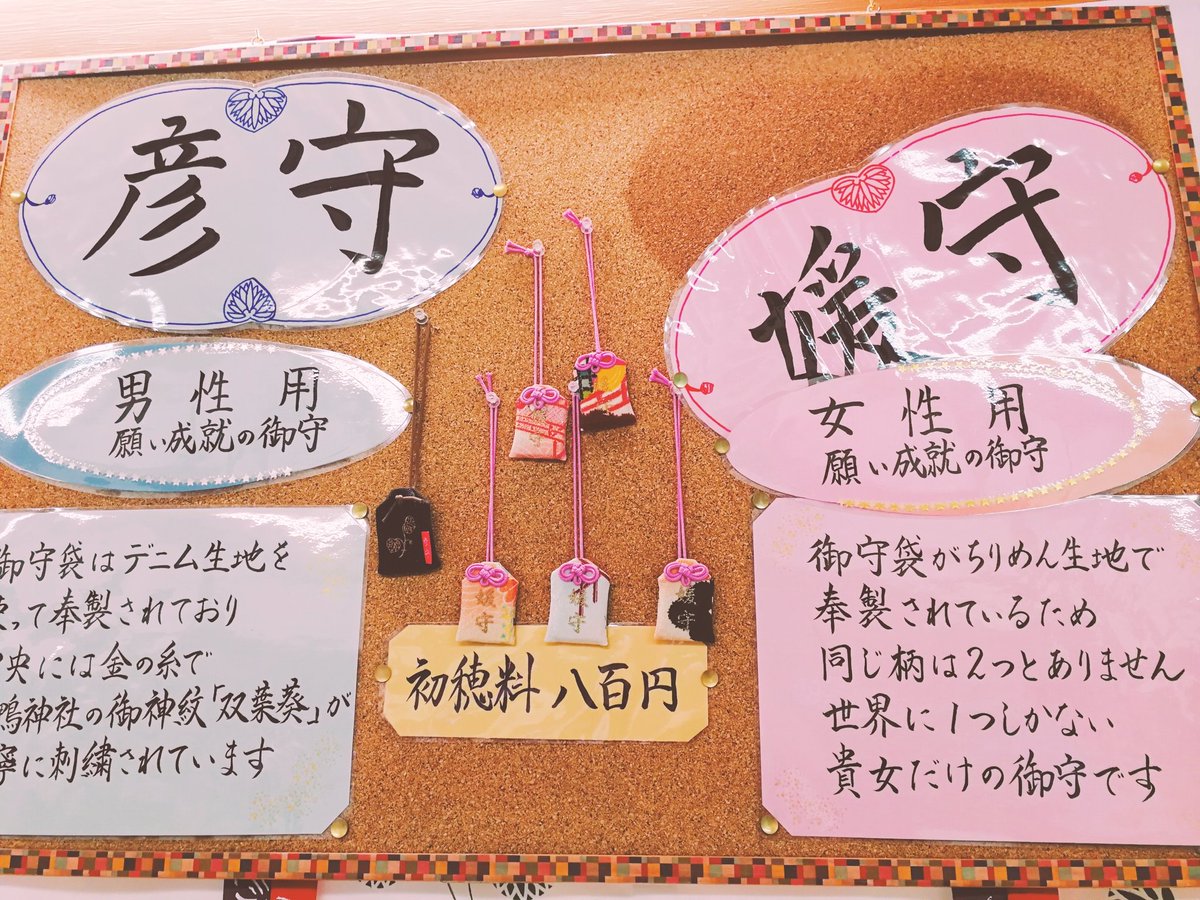 彦守
男性用
願い成就の御守
御守袋はデニム生地を
って奉製されており
央には金の糸で
鴨神社の御神紋「双葉葵」が
寧に刺繍されています
媛守
女性用
願い成就の御守
御守袋がちりめん生地で
奉製されているため
同じ柄は2つとありません
世界に1つしかない
貴女だけの御守です
媛守
媛守
媛守
初穂料 八百円